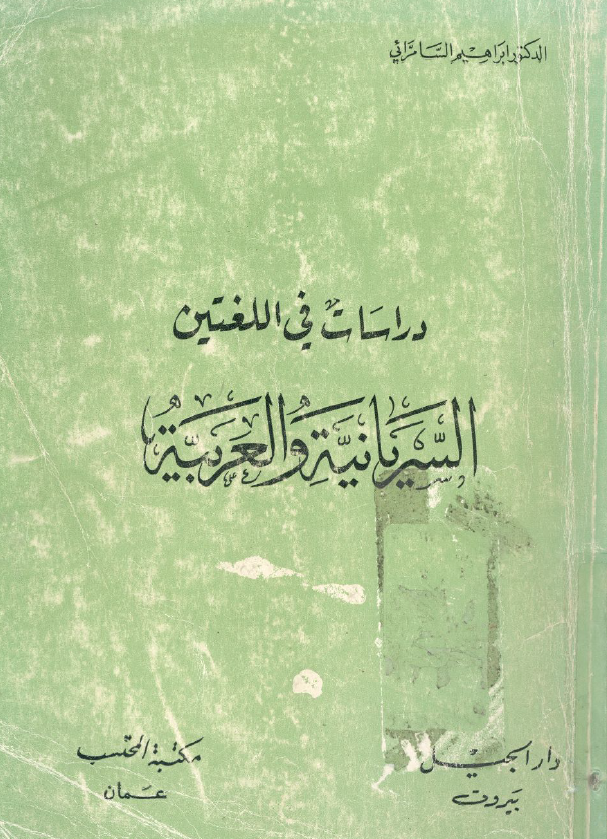 الدكتور ابراهيم السَّامرَّائي
دراسَاتٌ في اللغتين
السّريَانيَّةِ وَالعَرَبيَّةُ
دار الجيل
بَيروت
مكتبة المحتسب
عَمان